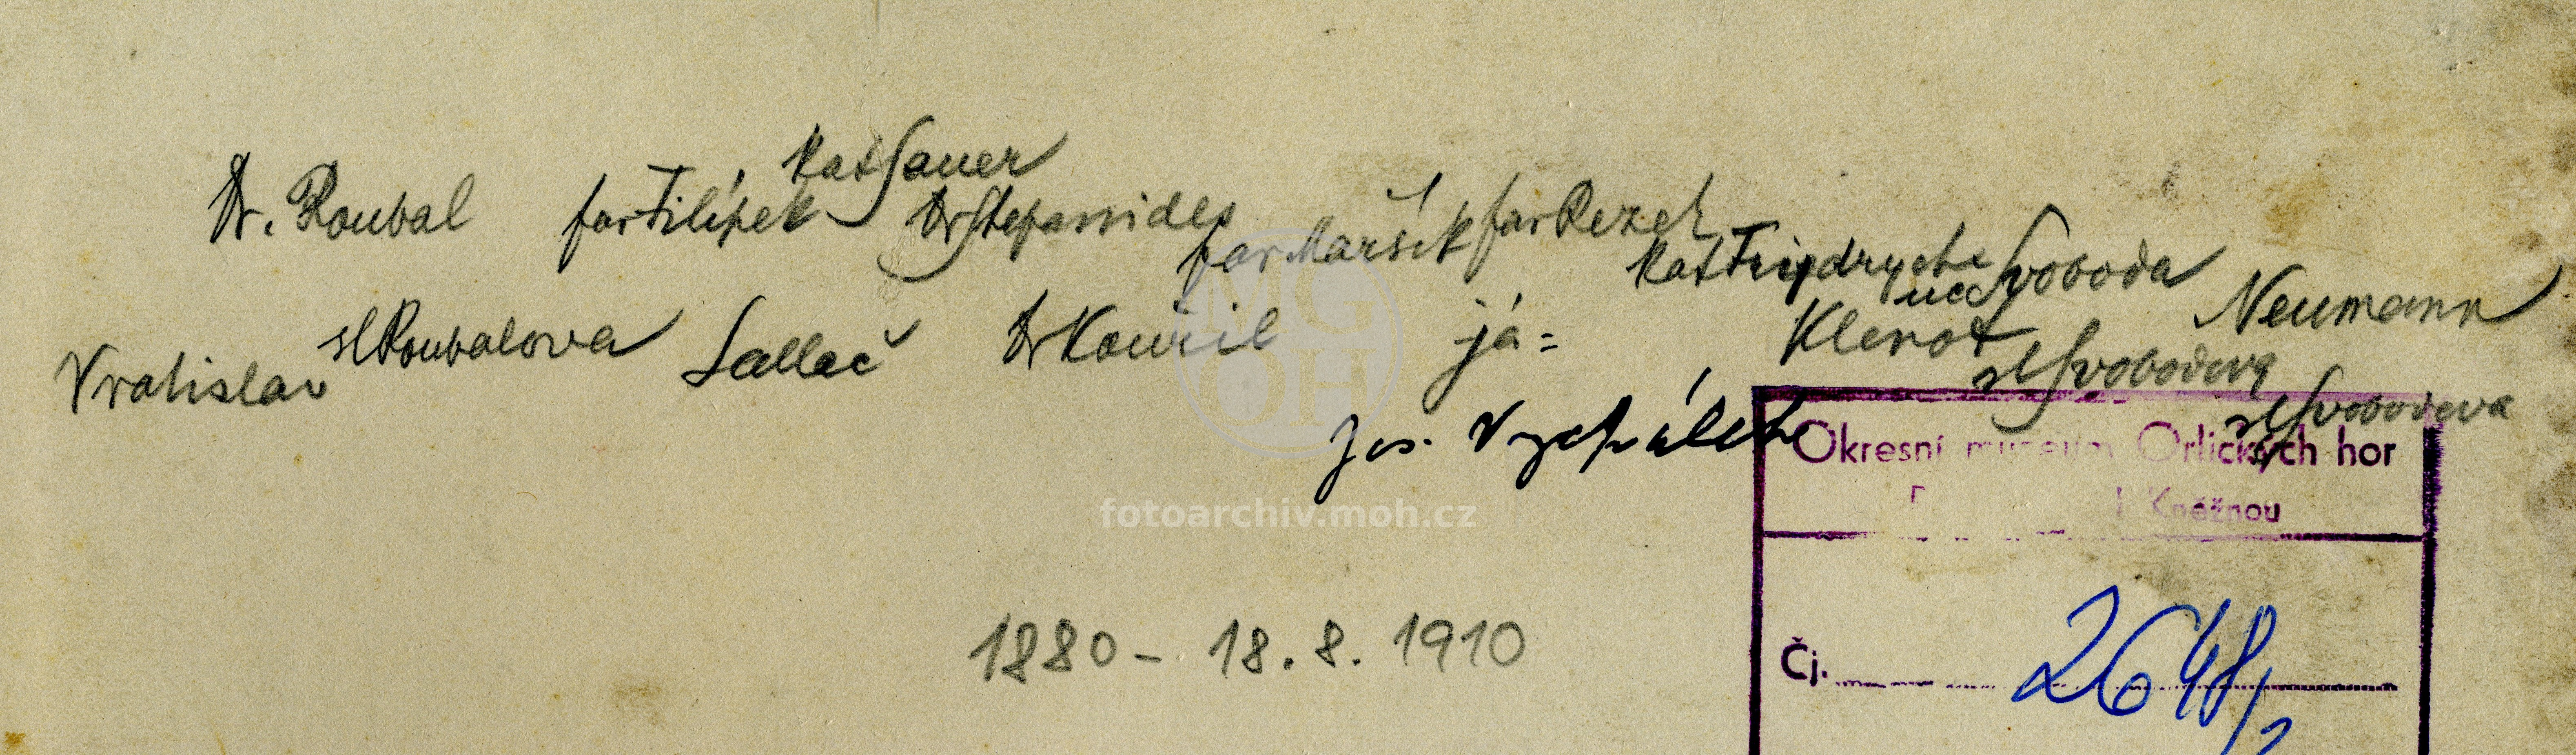 kat Sauer
Dr. Roubal far Filípek Dr Stepanides
far Maršík far Rezek
kat Frydrych Svoboda
uč Neumann
sl Roubalova Sallač Dr Kouřil já = Klenot
Vratislav sl Svobodova
sl Svobodova
Jos. Vychálek
Okresní muzeum Orlických hor
Kněžnou
fotoarchiv.moh.cz
1880 - 18. 8. 1910
Čj. 2648/2